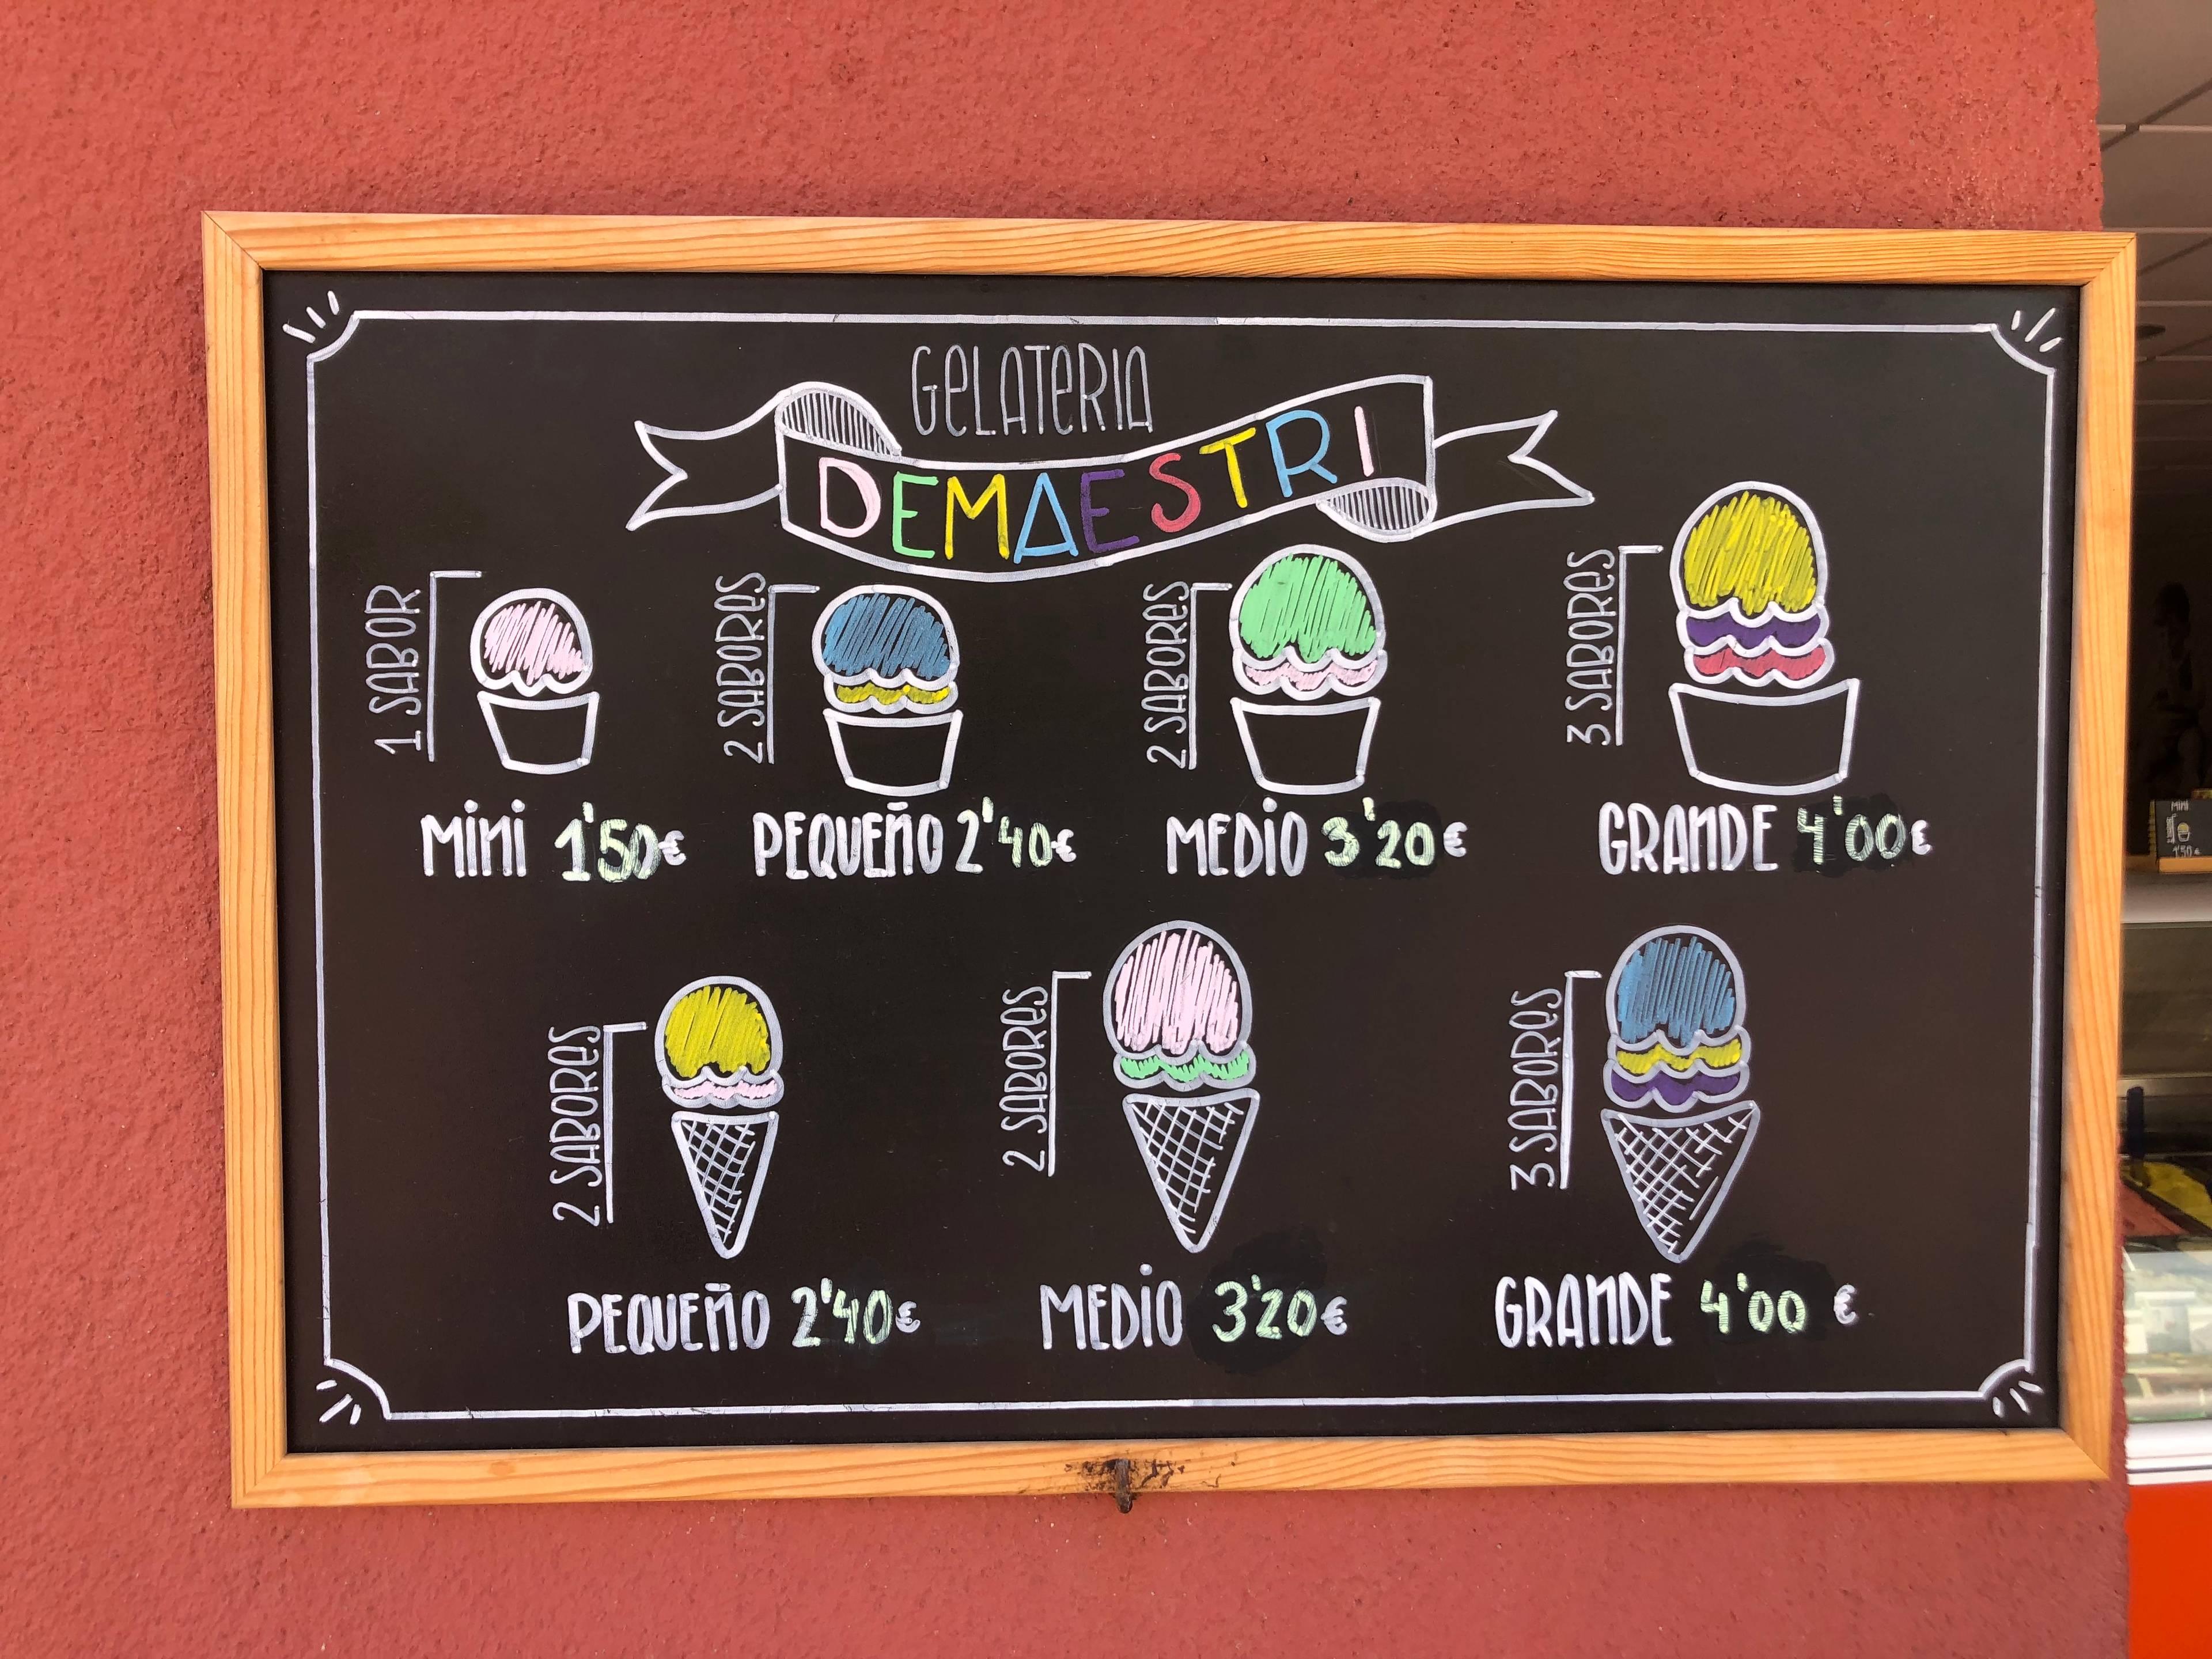 GELATERIA
DEMAESTRI
1 SABOR
2 SABORES
2 SABORES
3 SABORES
MINI 1'50€
PEQUEÑO 2'40€
MEDIO 3'20€
GRANDE 4'00€
2 SABORES
2 SABORES
3 SABORES
PEQUEÑO 2'40€
MEDIO 3'20€
GRANDE 4'00 €
MINI
1'50€